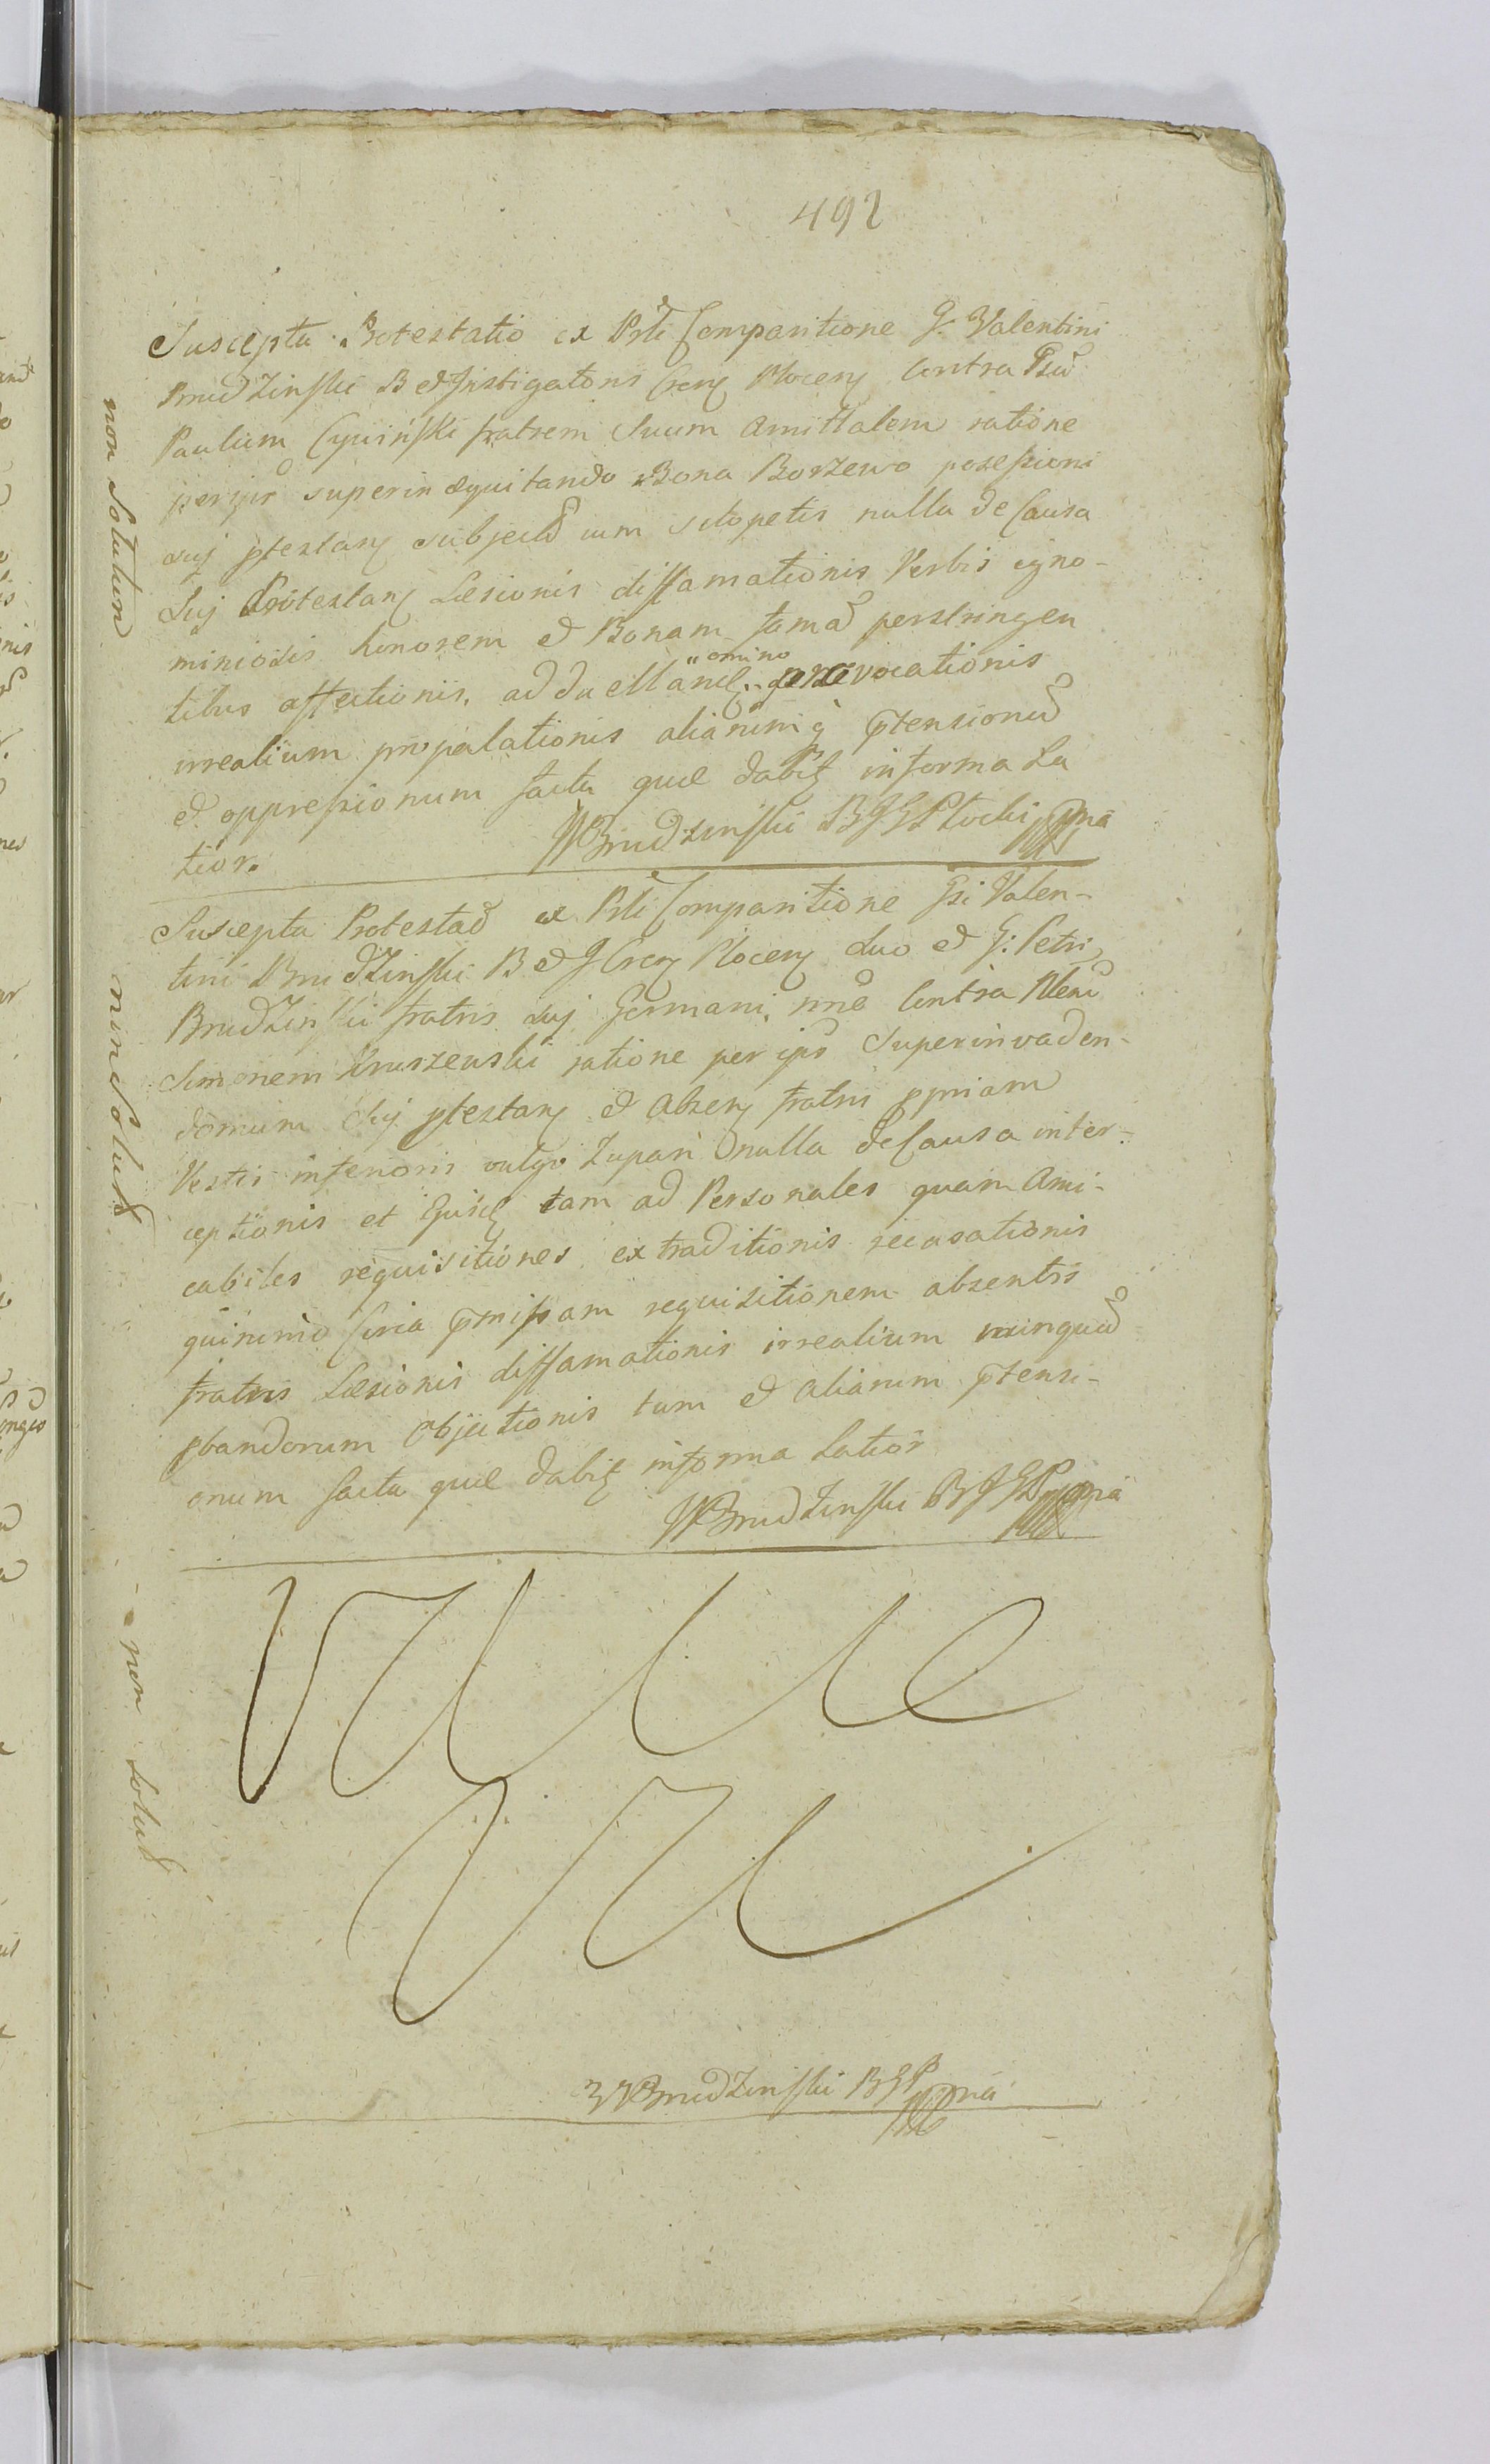 492
Suscepta Protestatio ex Psti Comparitione G. Valentini
Brudzinski B et Instigatoris Cren Plocen Contra Gsu
Paulum Cywiński fratrem Suum Amittalem ratione
per ips superin æquitando Bona Borzewo posessioni
suj ptestan subject cum sclopetis nulla de Causa
Suj Protestan Læsionis diffamationis Verbis igno-
miniosis honorem et Bonam fama perstringen
tibus affectionis, ad duellan omino provocationis
irrealium propalationis aliarum q ptension
et oppressionum facta quæ dabit informa La
tior.
VBrudzinski BJGPlocki mpria
Suscepta Protesta ex Psti Comparitione Gsi Valen-
tini Brudzinski B et J Cren Plocen suo et G: Petri
Brudzinski fratris suj Germani, nne Contra
Simonem Kruszenski ratione per ips superinvaden-
domum Suj ptestan et Absen fratris ppriam
Vestis inferioris vulgo Zupan nulla de Causa inter-
ceptionis et tam ad Personales quam Ami-
cabiles requisitiones extraditionis recusationis
quinimo Circa pmissam requisitionem absentis
fratris Læsionis diffamationis irrealium nunqua
pbandorum Objectionis tam et aliarum ptensi-
onum facta quæ dabit informa Latior
VBrudzinski BJGP mpria
VBrudzinski BGP mpria
non Solutum
non Solut
non Solut